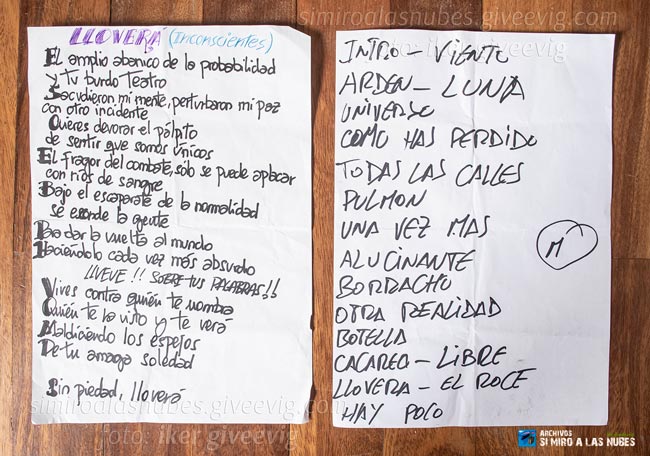 LLOVERÁ (Inconscientes)
El amplio abanico de la probabilidad
y tu burdo teatro
Sacudieron mi mente, perturbaron mi paz
con otro incidente
Quieres devorar el pálpito
de sentir que somos únicos
El fragor del combate, sólo se puede aplacar
con ríos de sangre
Bajo el escaparate de la normalidad
se esconde la gente
Para dar la vuelta al mundo
Haciéndolo cada vez más absurdo
LLUEVE!! SOBRE TUS PALABRAS!!
Vives contra quién te nombra
Quién te ha visto y te verá
Maldiciendo los espejos
De tu amarga soledad
Sin piedad, lloverá
INTRO - VIENTO
ARDEN - LUNA
UNIVERSO
COMO HAS PERDIDO
TODAS LAS CALLES
PULMON
UNA VEZ MAS
ALUCINANTE
BORRACHO
OTRA REALIDAD
BOTELLA
CACAREO - LIBRE
LLOVERA - EL ROCE
HAY POCO
M
simiroalasnubes.giveevig.com
foto: iker giveevig
simiroalasnubes.giveevig.com
simiroalasnubes.giveevig.com
foto: iker giveevig
ARCHIVOS
SI MIRO A LAS NUBES